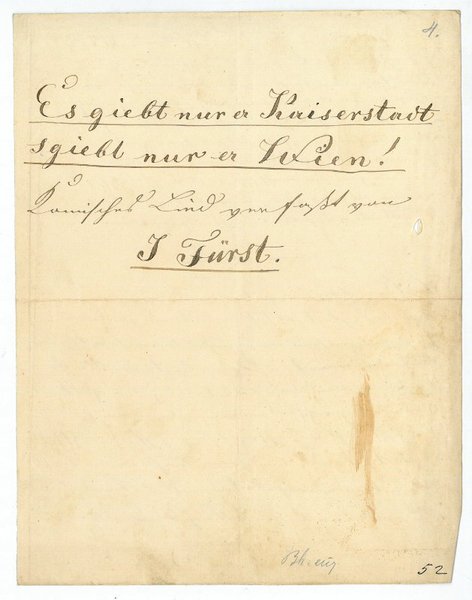 4.
Es giebt nur a Kaiserstadt
sgiebt nur a Wien!
Komisches Lied verfaßt von
J Fürst.
52